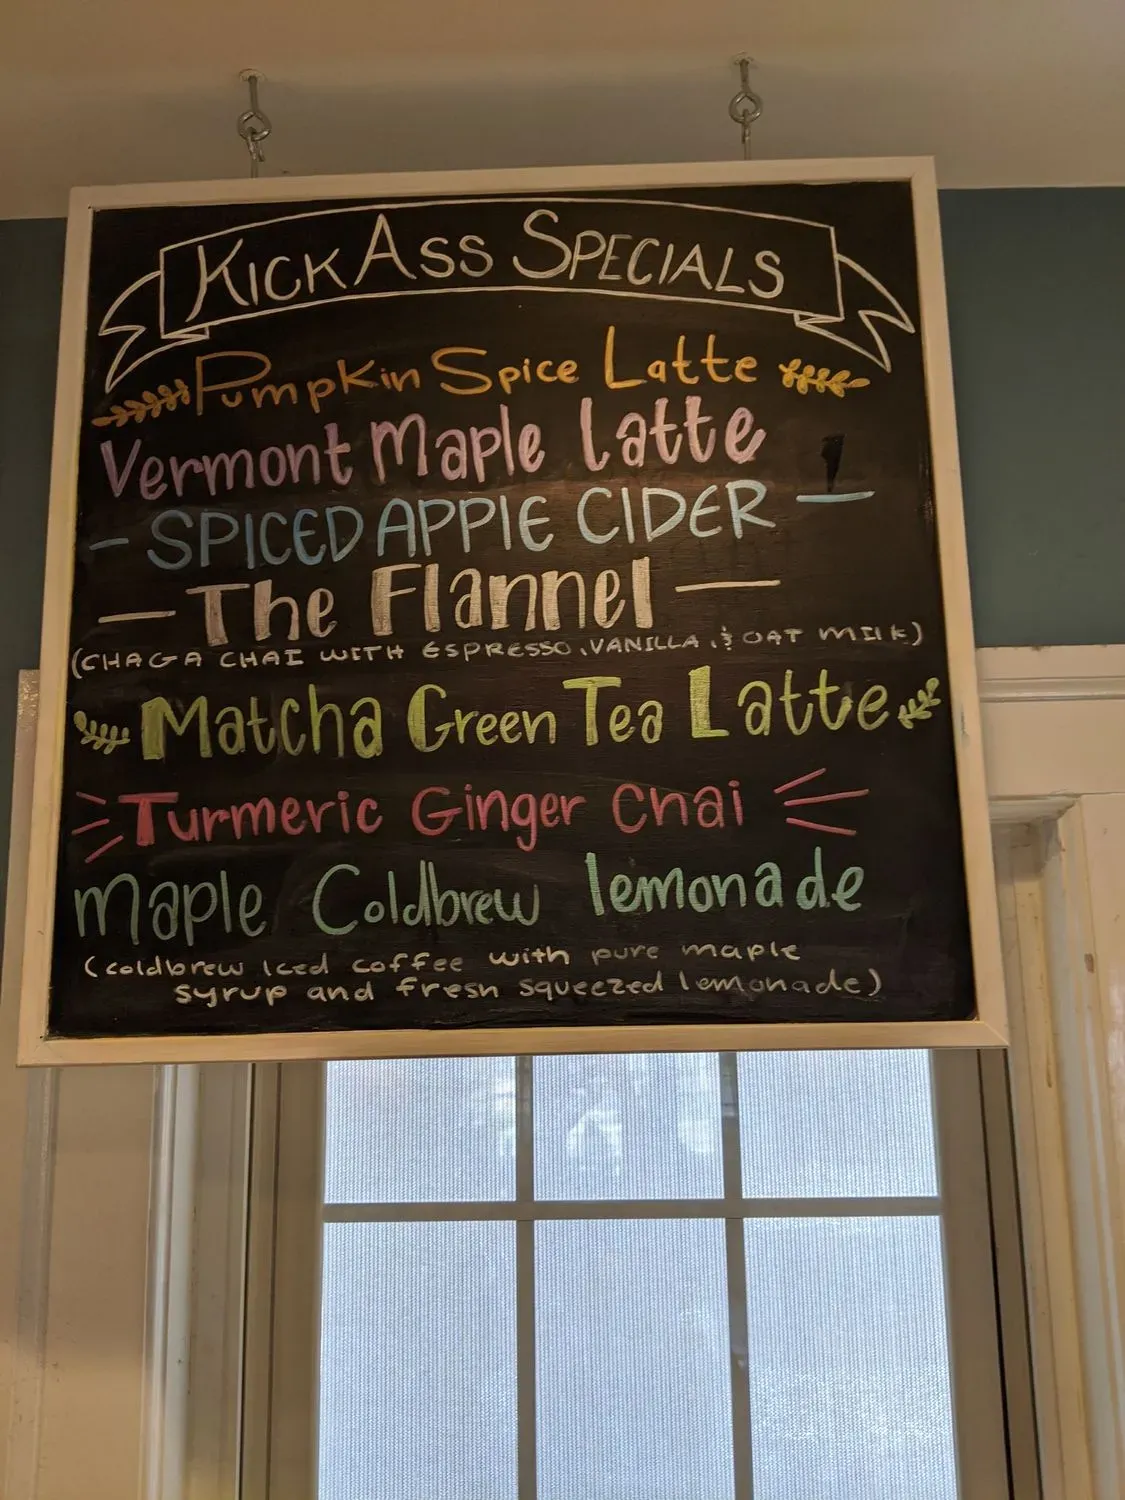 KICKASS SPECIALS
Pumpkin Spice Latte
Vermont Maple latte
- SPICED APPLE CIDER -
- The Flannel -
(CHAGA CHAI WITH ESPRESSO, VANILLA, & OAT MILK)
Matcha Green Tea Latte
Turmeric Ginger Chai
Maple Coldbrew lemonade
(coldbrew Iced coffee with pure maple
syrup and fresh squeezed lemonade)